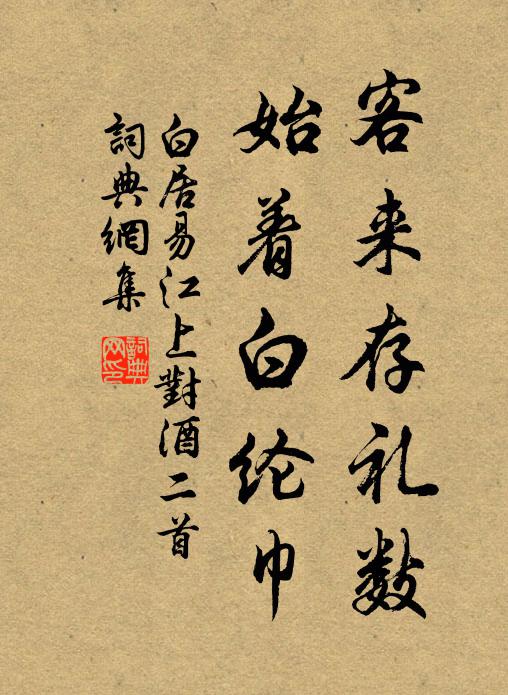 客来存礼数
始着白纶巾
白居易江上對酒二首
詞典網集
詞典网印